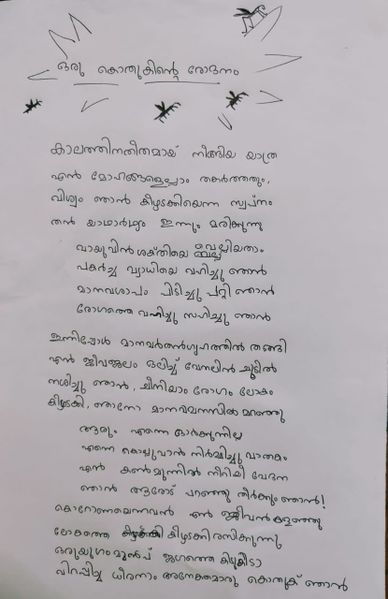 ഒരു കൊതുകിന്റെ രോദനം
കാലത്തിനതീതമായ് നീങ്ങിയ യാത്ര
എൻ മോഹങ്ങളെല്ലാം തകർത്തതും,
വിശ്വം ഞാൻ കീഴടക്കിയെന്ന സ്വപ്നം
തൻ യാഥാർഥ്യം ഇന്നും മരിക്കുന്നു
വായുവിൻ ശക്തിയെ
പകർച്ച വ്യാധിയെ വഹിച്ചു ഞാൻ
മാനവശാപം പിടിച്ചു പറ്റി ഞാൻ
രോഗത്തെ വഹിച്ചു സഹിച്ചു ഞാൻ
ഇന്നിപ്പോൾ തങ്ങി
എൻ ജീവജലം ഒലിച്ച് വേനലിൻ ചൂടിൽ
നശിച്ചു ഞാൻ, രോഗം ലോകം
കീഴടക്കി, ഞാനോ മറഞ്ഞു
ആരും എന്നെ ഓർക്കുന്നില്ല
എന്നെ കൊല്ലുവാൻ നിർമ്മിച്ചു വാതകം
എൻ കൺമുന്നിൽ നീറിയ വേദന
ഞാൻ ആരോട് പറഞ്ഞു തീർക്കും ഞാൻ!
കൊറോണയെന്നവൻ എൻ ജീവൻ കളഞ്ഞു
ലോകത്തെ കീഴടക്കി രസിക്കുന്നു
ഒരുയുഗം മുൻപ് ജഗത്തെ കിടുകിടാ
വിറപ്പിച്ച ധീരനാം കൊതുക് ഞാൻ